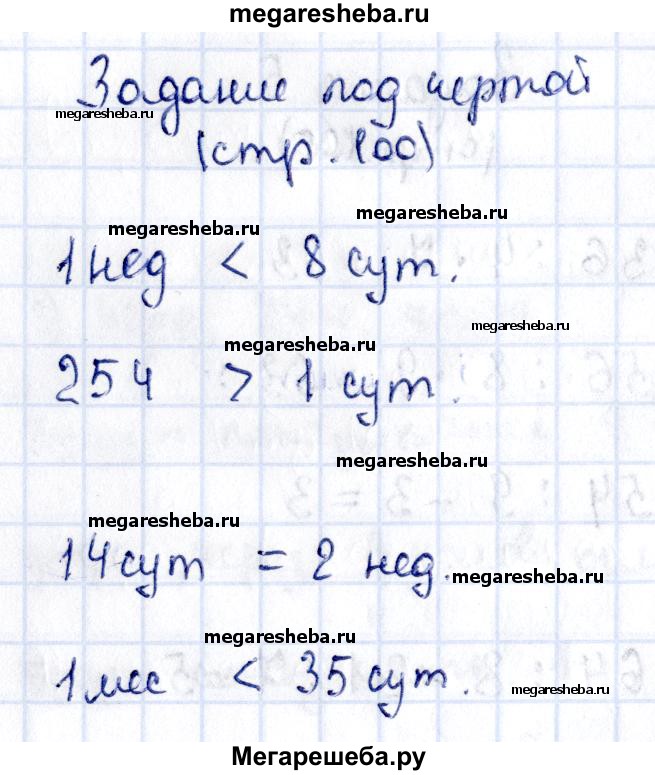 megaresheba.ru
Задание под чертой
megaresheba.ru
(стр. 100)
megaresheba.ru
megaresheba.ru
1 нед < 8 сут.
megaresheba.ru
megaresheba.ru
25 ч > 1 сут.
megaresheba.ru
megaresheba.ru
14 сут = 2 нед.
megaresheba.ru
megaresheba.ru
1 мес < 35 сут.
megaresheba.ru
Мегарешеба.ру